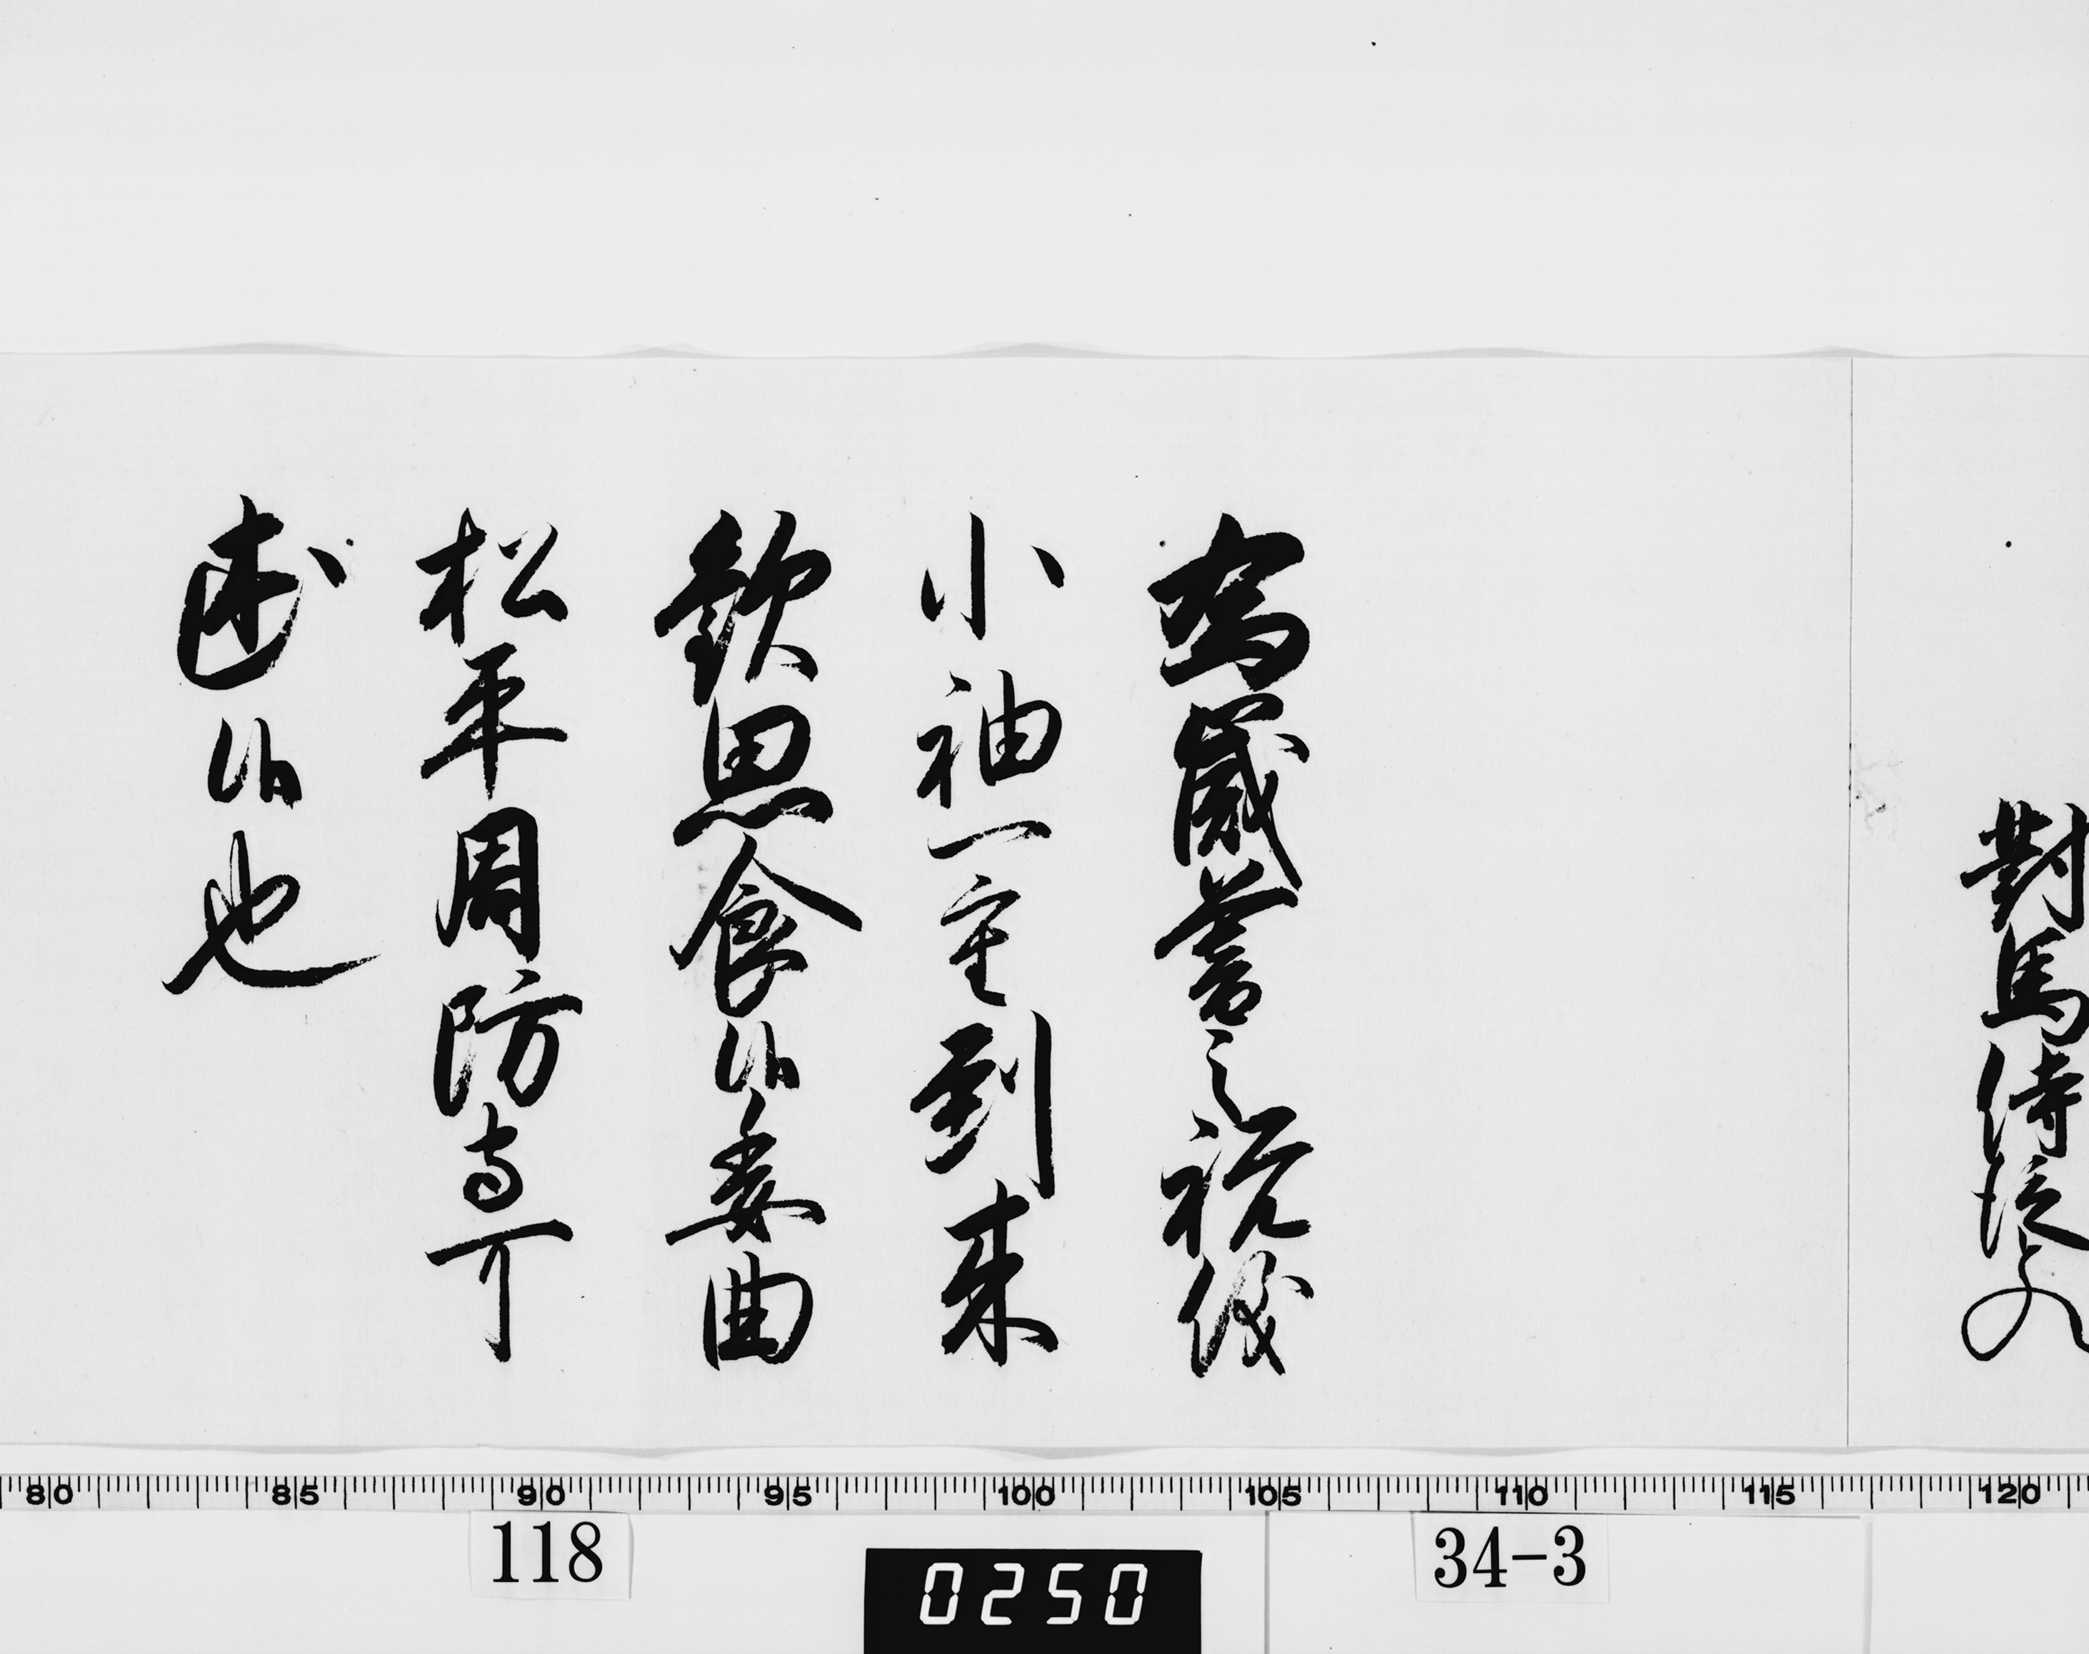 對馬侍従との
為歳暮之祝儀
小袖一重到来
歓思食候委曲
松平周防守可
述候也
80 85 90 95 100 105 110 115 120
118
0250
34-3